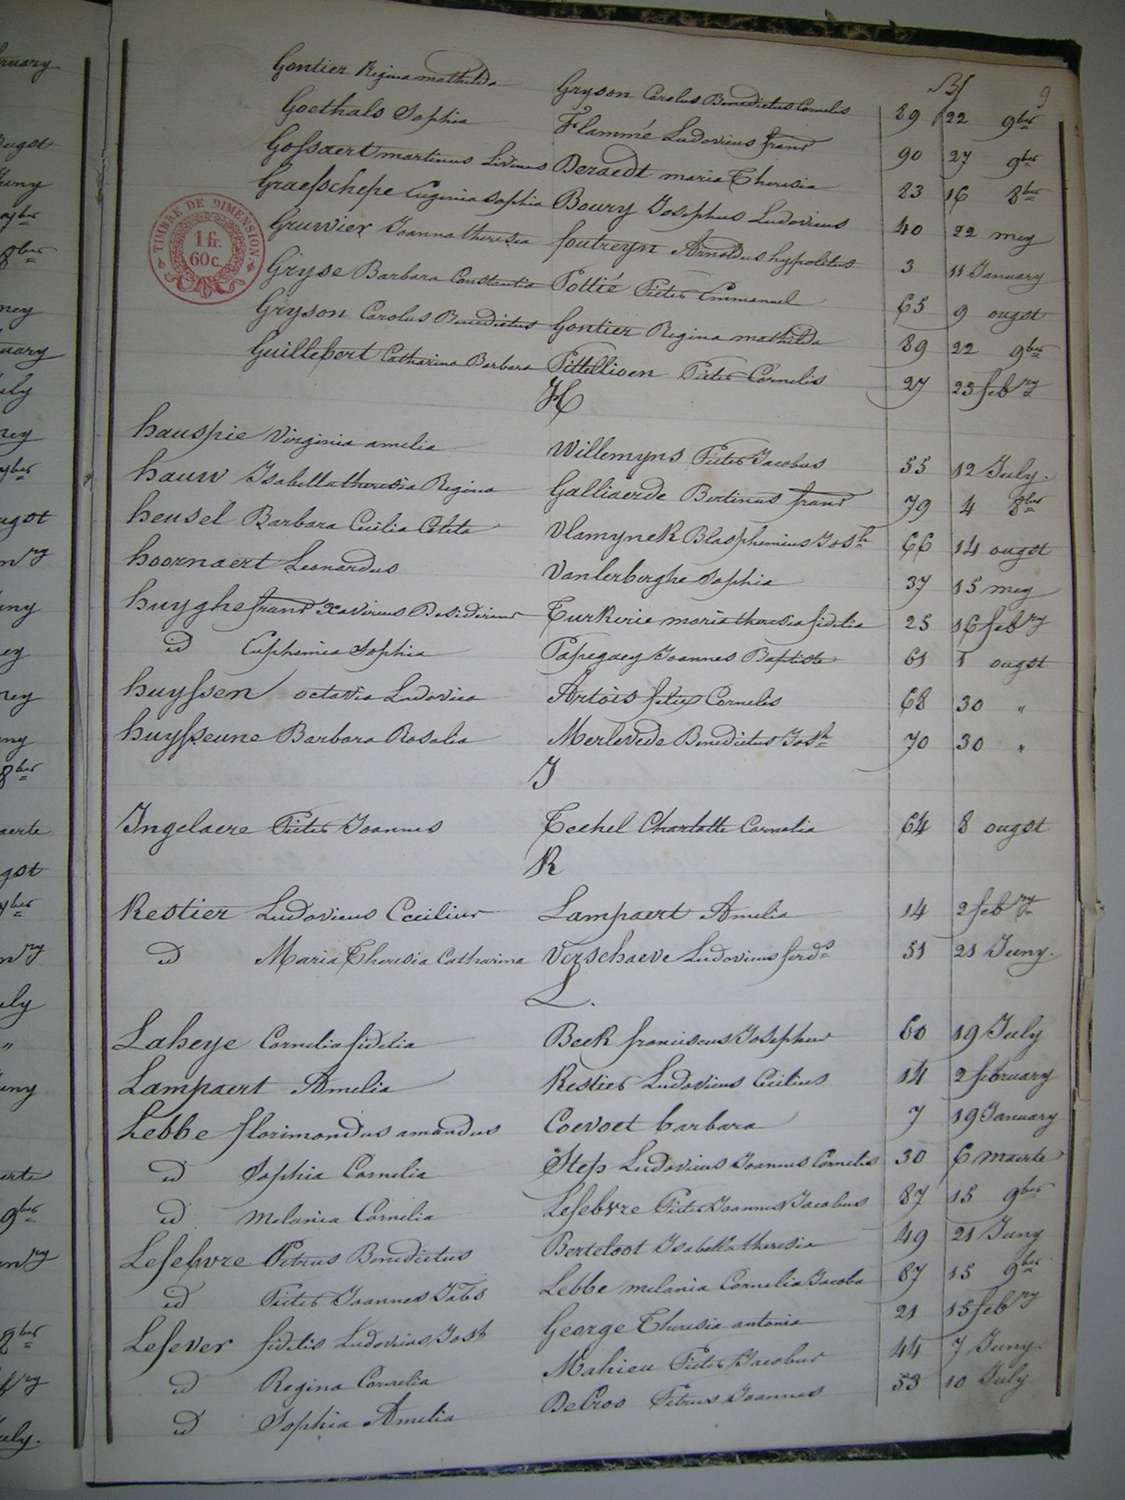 9
Gontier Regina mathilda Gryson Carolus Benedictus Cornelis 89 22 9ber
Goethals Sophia Flammé Ludovicus frans 90 27 9ber
Gossaert martinus Livinus Beraedt maria Theresia 23 16 8ber
Graefschepe Eugenia Sophia Boury Josephus Ludovicus 40 22 mey
Gruwier Joanna theresia foutreyn Arnoldus hypolitus 3 11 January
Gryse Barbara Constantia Pottié Pieter Emmanuel 65 9 ougst
Gryson Carolus Benedictus Gontier Regina mathilda 89 22 9ber
Guillebert Catharina Barbara Pittellioen Pieter Cornelis 27 23 febry
TIMBRE DE DIMENSION
1 fr.
60 c.
H
hauspie Virginia amelia Willemyns Pieter Jacobus 55 12 July.
hauw Isabella theresia Regina Galliaerde Bertinus frans 79 4 8ber
heusel Barbara Cecilia Coleta Vlamynck Blasphemius Josh 66 14 ougst
hoornaert Leonardus Vanlerberghe Sophia 37 15 mey
huyghe frans Xaverius Desiderius Turkerie maria theresia fidelia 25 16 febry
id Euphemia Sophia Papegaey Joannes Baptiste 61 1 ougst
huyssen octavia Ludovica Artois felix Cornelis 68 30 "
huysseune Barbara Rosalia Merlevede Benedictus Josh 70 30 "
J
Ingelaere Pieter Joannes Techel Charlotte Cornelia 64 8 ougst
K
Kestier Ludovicus Cecilius Lampaert Amelia 14 2 febry
id Maria Theresia Catharina Verschaeve Ludovicus ferds 51 21 Juny.
L.
Laheye Cornelia fidelia Beck franciscus Josephus 60 19 July
Lampaert Amelia Kestier Ludovicus Cecilius 14 2 february
Lebbe florimondus amandus Coevoet barbara 7 19 January
id Sophia Cornelia Steps Ludovicus Joannes Cornelis 30 6 maerte
id melania Cornelia Lefebvre Pieter Joannes Jacobus 87 15 9ber
Lefebvre Petrus Benedictus Berteloot Isabella theresia 49 21 Juny
id Pieter Joannes Jabs Lebbe melania Cornelia Jacoba 87 15 9ber
Lefever fidelis Ludovicus Josh George Theresia antonia 21 15 febry
id Regina Cornelia Mahieu Pieter Jacobus 44 7 Juny.
id Sophia Amelia DeCros Petrus Joannes 53 10 July